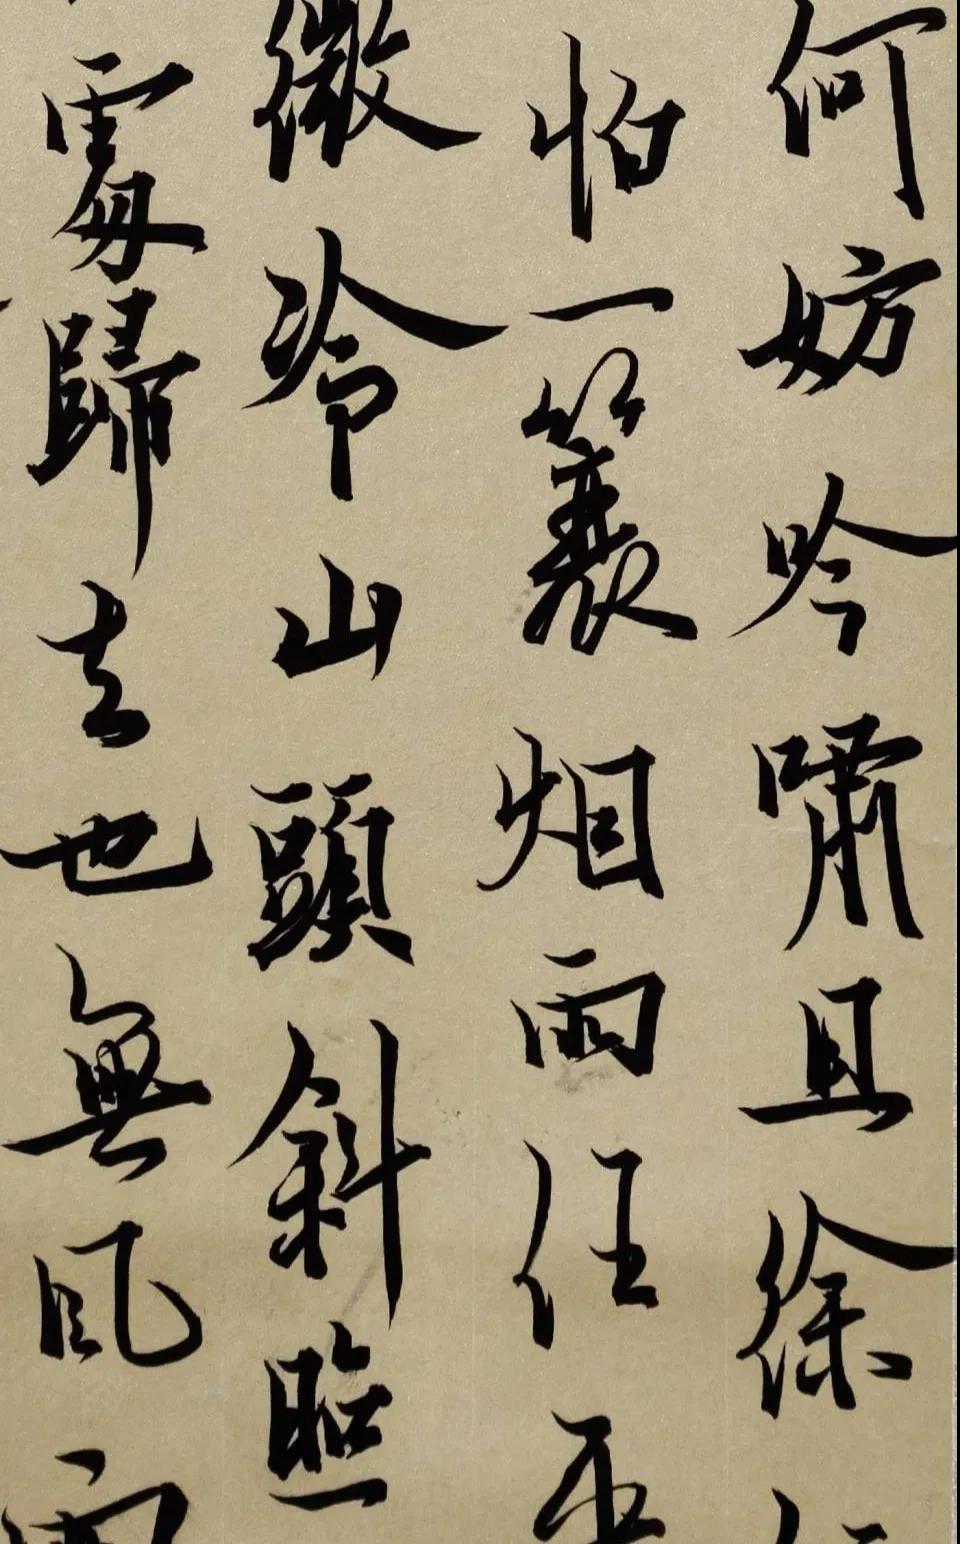 何妨吟嘯且徐
怕一簑烟雨任平
微冷山頭斜照
處歸去也無風雨